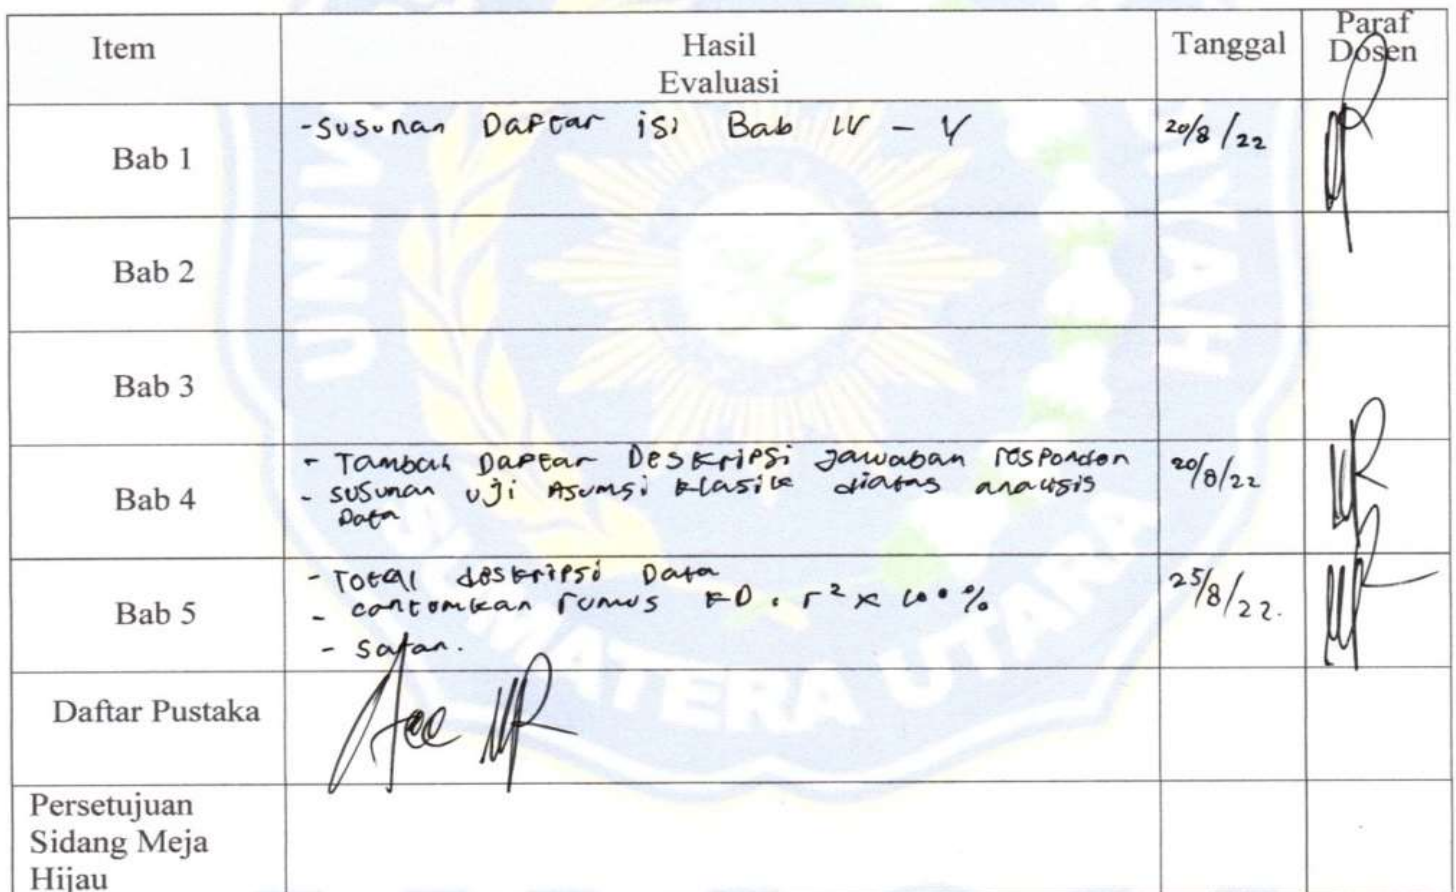 Item Hasil Tanggal Paraf
Evaluasi Dosen
Bab 1 -Susunan Daftar isi Bab IV - V 20/8/22
Bab 2
Bab 3
Bab 4 - Tambah Daftar Deskripsi Jawaban responden 20/8/22
- susunan uji Asumsi klasik diatas analisis
Data
Bab 5 - Total deskripsi Data 25/8/22.
- cantomkan rumus KD. r² x 100%
- Saran.
Daftar Pustaka Acc
Persetujuan
Sidang Meja
Hijau
UNIV
YAH
SUMATERA UTARA